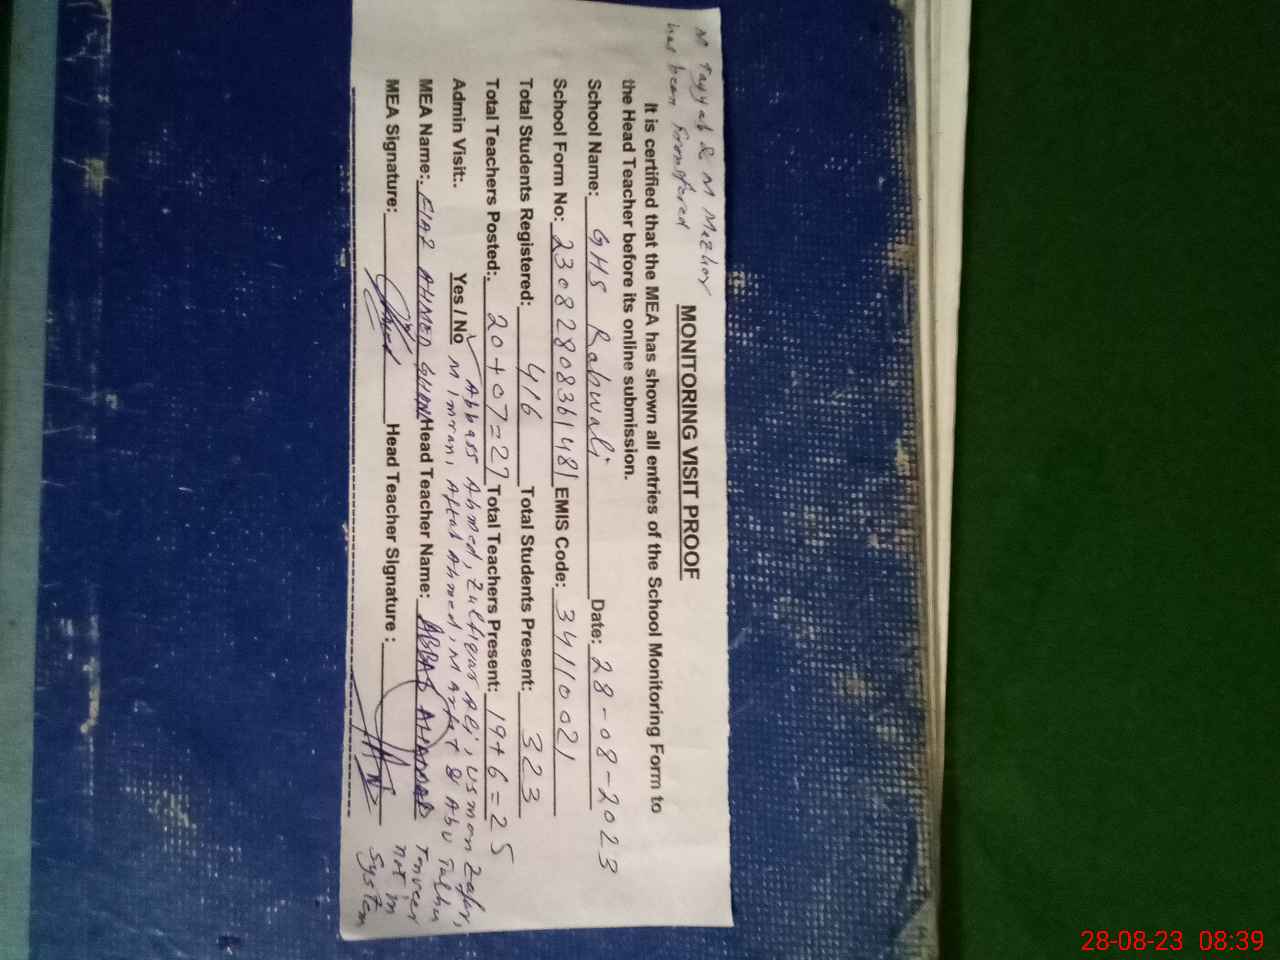 M Tayyab & M Mazhar
has been transfered
MONITORING VISIT PROOF
It is certified that the MEA has shown all entries of the School Monitoring Form to
the Head Teacher before its online submission.
School Name: GHS Rahwali Date: 28-08-2023
School Form No: 23082808361481 EMIS Code: 34110021
Total Students Registered: 416 Total Students Present: 323
Total Teachers Posted:. 20+07=27 Total Teachers Present: 19+6=25
Admin Visit:. Yes / No ✓ Abbass Ahmed, Zulfiqar Ali, Usman Zafar,
M Imran, Aftab Ahmed, M & Abu Talha
Tanveer
not in
System
MEA Name:. AHMED Head Teacher Name: ABBAS
MEA Signature: Head Teacher Signature :
28-08-23 08:39